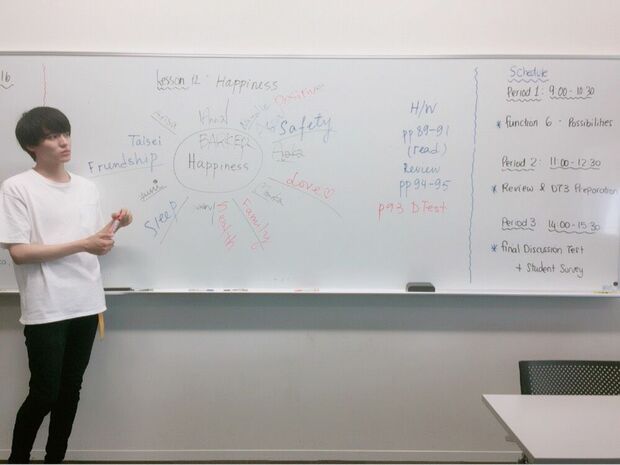 16.
Lesson 12 : Happiness
Positive
Safety
BAKKEN
Happiness
Taisei
Frundship
Food
Love♡
Sleep
Health
Family
H/W
pp 89-91
(read)
Review
pp 94-95
p93 DTest
Schedule
Period 1 : 9:00-10:30
* Function 6 : Possibilities
Period 2 : 11:00-12:30
* Review & DT3 Preparation
Period 3 14:00-15:30
* Final Discussion Test
+ Student Survey